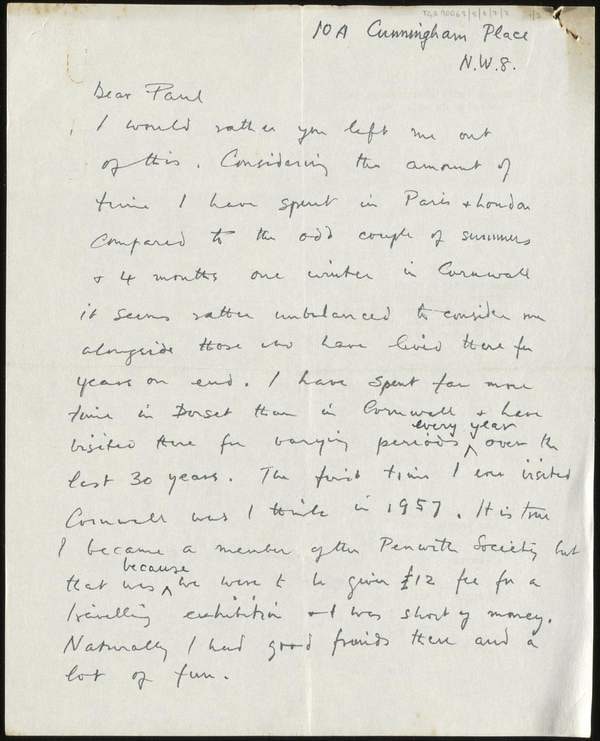 10A Cunningham Place
N.W.8.
Dear Paul
I would rather you left me out
of this. Considering the amount of
time I have spent in Paris & London
compared to the odd couple of summers
& 4 months one winter in Cornwall
it seems rather unbalanced to consider me
alongside those who have lived there for
years on end. I have spent far more
time in Dorset than in Cornwall & have
every year
visited there for varying periods ^ over the
last 30 years. The first time I ever visited
Cornwall was I think in 1957. It is true
I became a member of the Penwith Society but
because
that was ^ we were to be given £12 fee for a
travelling exhibition & I was short of money.
Naturally I had good friends there and a
lot of fun.